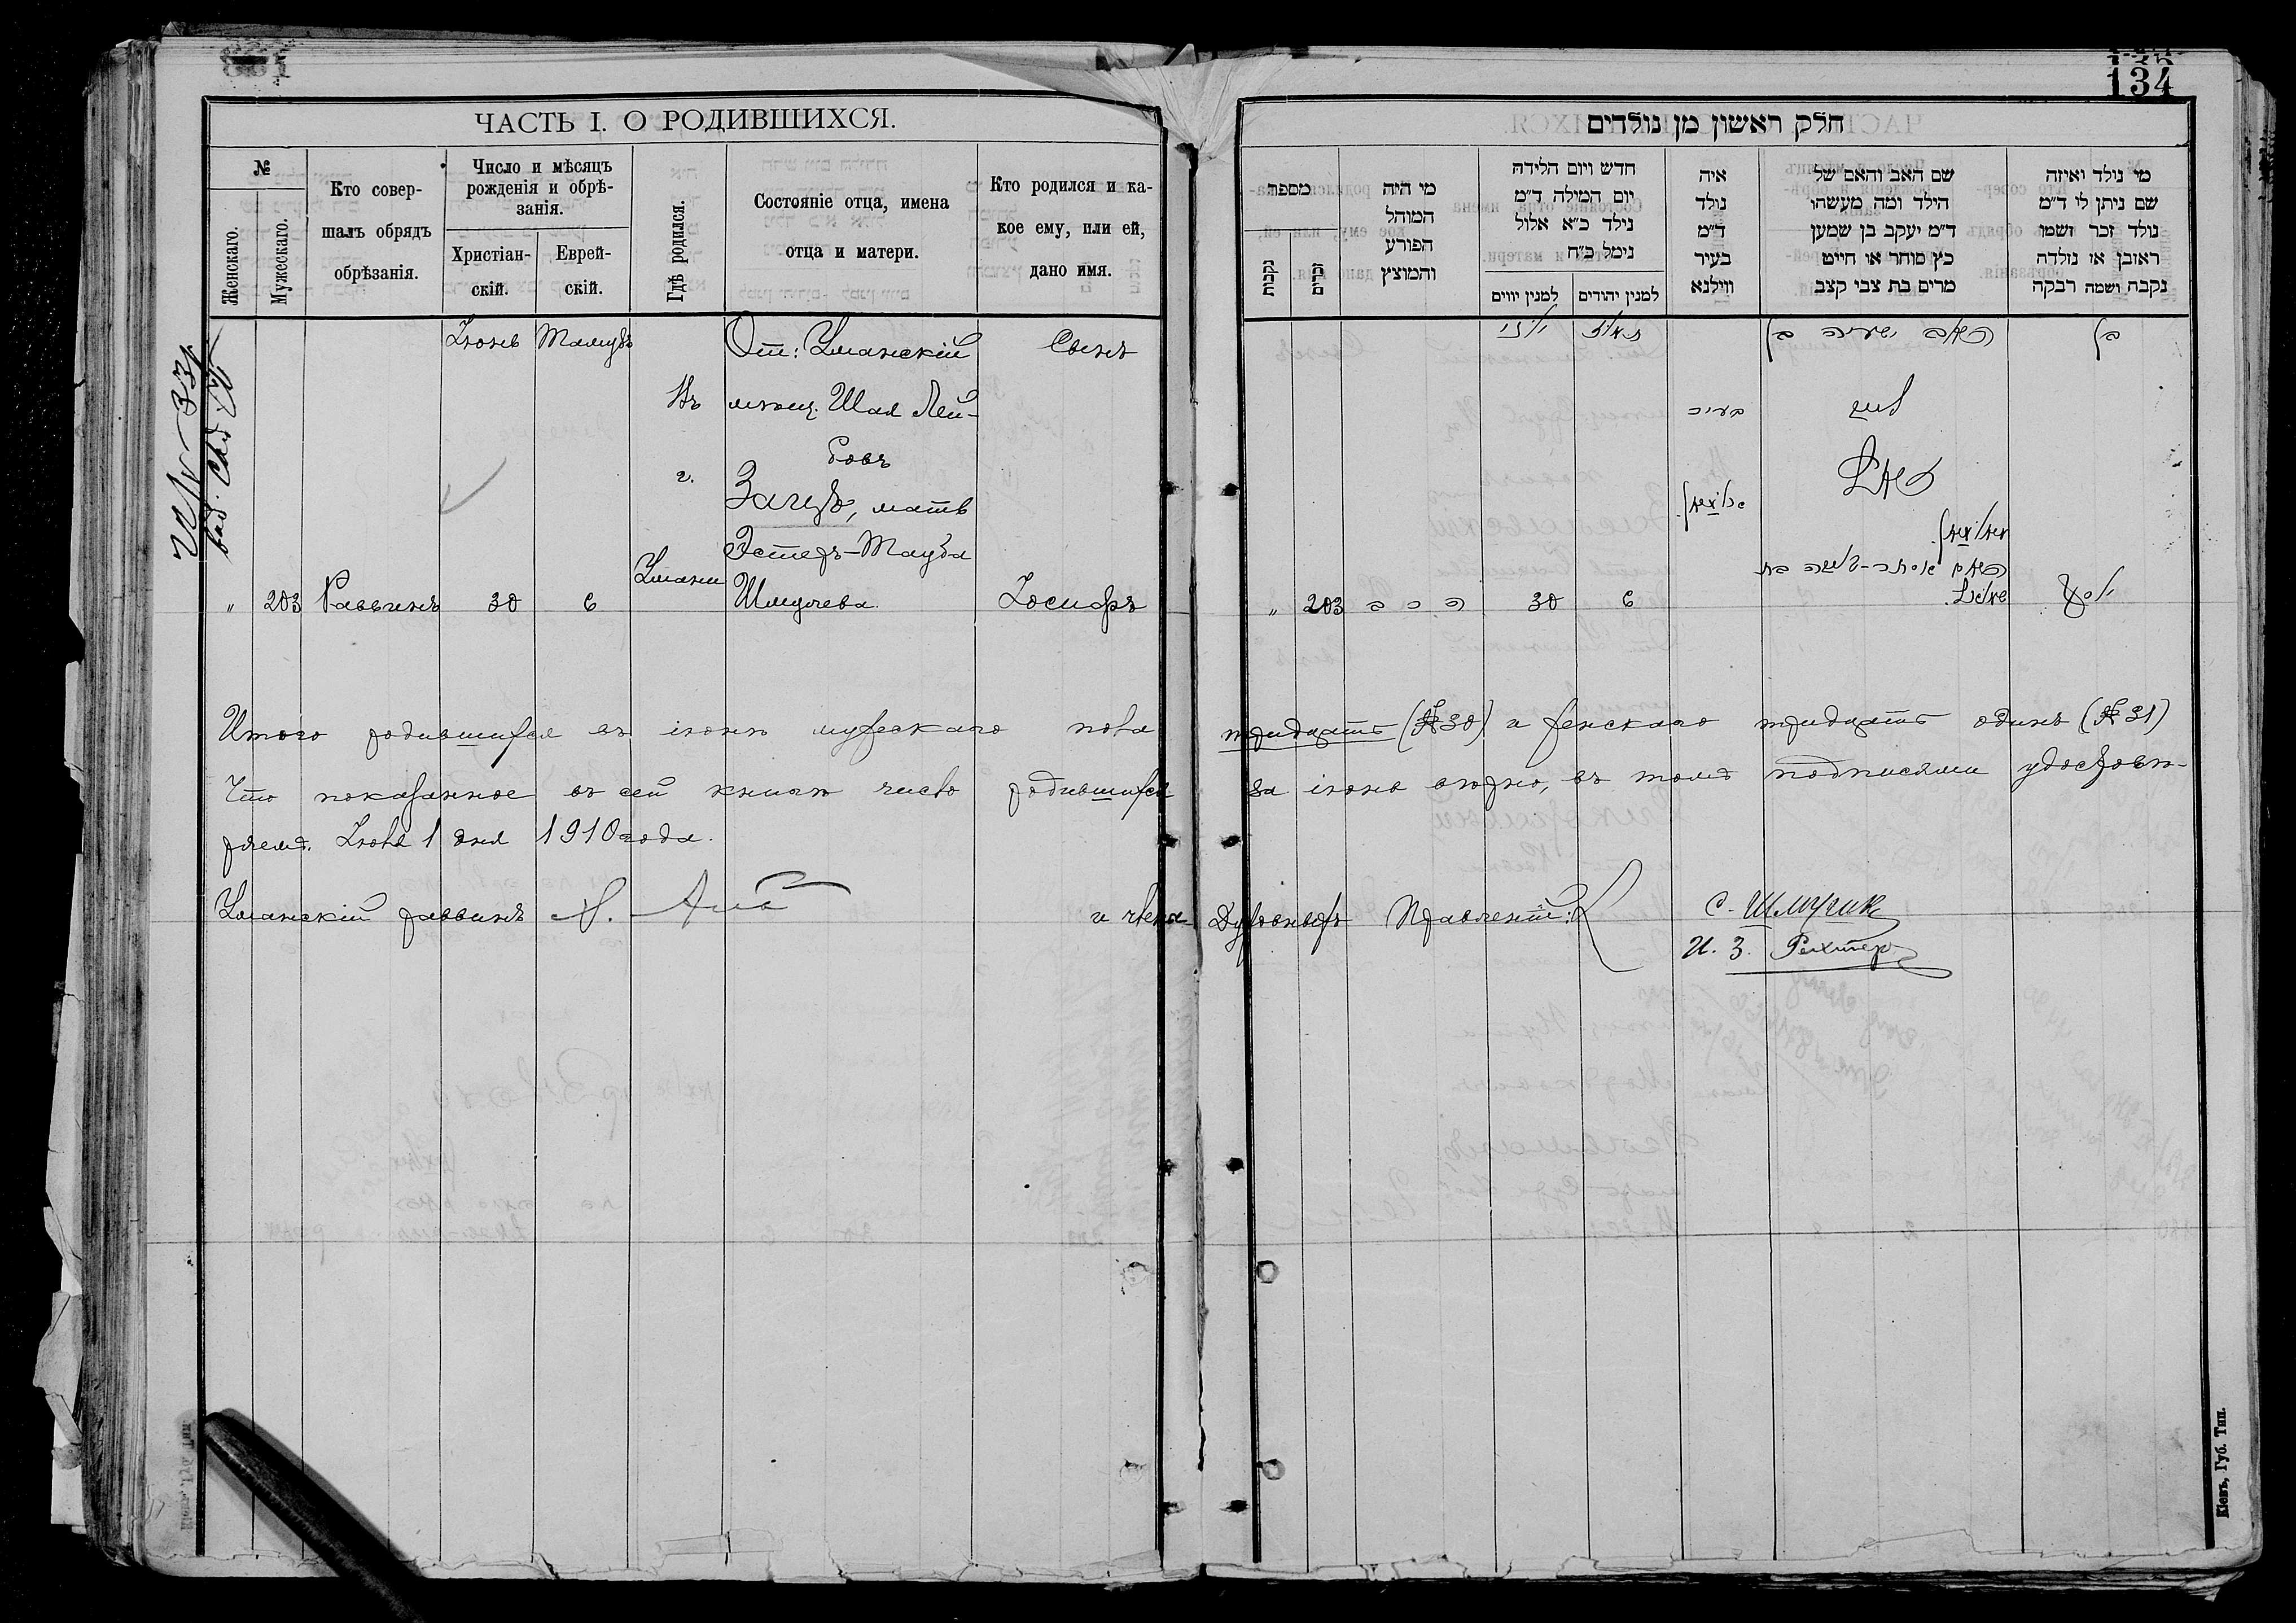 134
ЧАСТЬ I. О РОДИВШИХСЯ.
№
Женскаго.
Мужескаго.
Кто совер-
шалъ обрядъ
обрѣзанія.
Число и мѣсяцъ
рожденія и обрѣ-
занія.
Христіан-
скій.
Еврей-
скій.
Гдѣ родился.
Состояніе отца, имена
отца и матери.
Кто родился и ка-
кое ему, или ей,
дано имя.
Іюнь Тамузъ От: Уманскій Сынъ
Въ мѣщ. Шая Лей-
бовъ
г. Зайцъ, мать
Эстеръ-Тауба
Умани
" 203 Раввинъ 30 6 Шмулева. Іосифъ
חלק ראשון מן נולדים
מספר
נקבות
זכרים
מי היה
המוהל
הפורע
והמוצץ
חדש ויום הלידה
יום המילה ד״מ
נילד כ״א אלול
נימל כ״ח
למנין יווים
למנין יהודים
איה
נולד
ד״מ
בעיר
ווילנא
שם האב והאם של
הילד ומה מעשהו
ד״מ יעקב בן שמען
כץ סוחר או חייט
מרים בת צבי קצב
מי נולד ואיזה
שם ניתן לו ד״מ
נולד זכר ושמו
ראובן או נולדה
נקבה ושמה רבקה
בן
האב ישעיה בן
תמוז
יוני
ליב
בעיר
אומאן
האם אסתר-טויבה בת
שמואל
יוסף
" 203 הרב 30 6
Итого родившихся въ іюнѣ мужескаго пола тридцать (№ 30) и женскаго тридцать одинъ (№ 31)
Что показанное въ сей книгѣ число родившихся за іюнь вѣрно, въ томъ подписями удостовѣ-
ряемъ. Іюля 1 дня 1910 года.
Уманскій раввинъ
и члены Духовныхъ Правленій:
С. Шмулик
И. З. Рихтер
Кіевъ, Губ. Тип.